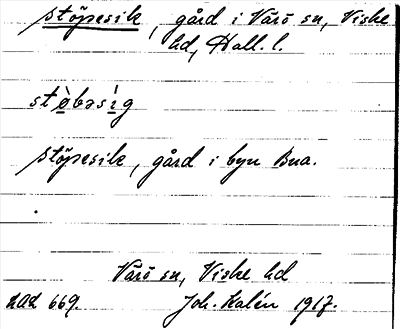 Stöpesik, gård i Värö sn, Viske
hd, Hall. l.
stø̀bəsìg
Stöpesik, gård i byn Bua.
Värö sn, Viske hd
ULD 669. Joh. Kalén 1917.